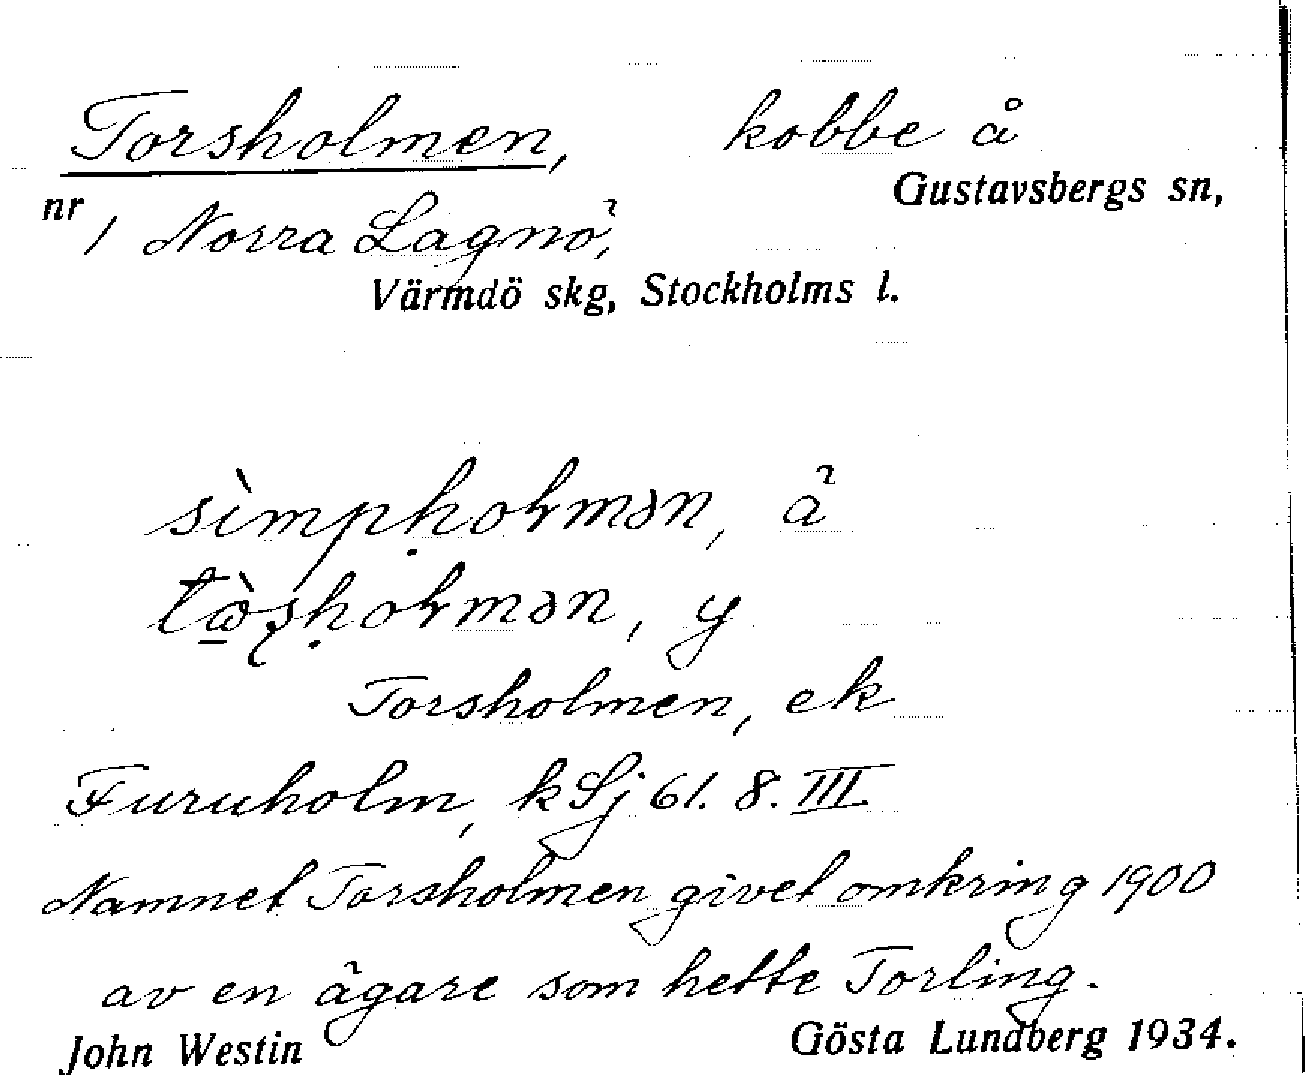 Torsholmen, kobbe å
Gustavsbergs sn,
nr 1 Norra Lagnö,
Värmdö skg, Stockholms l.
sìmpḥołmən, ä
tòʂḥołmən, y
Torsholmen, ek
Furuholm, k Sj 61. 8. III
Namnet Torsholmen givet omkring 1900
av en ägare som hette Torling.
John Westin Gösta Lundberg 1934.